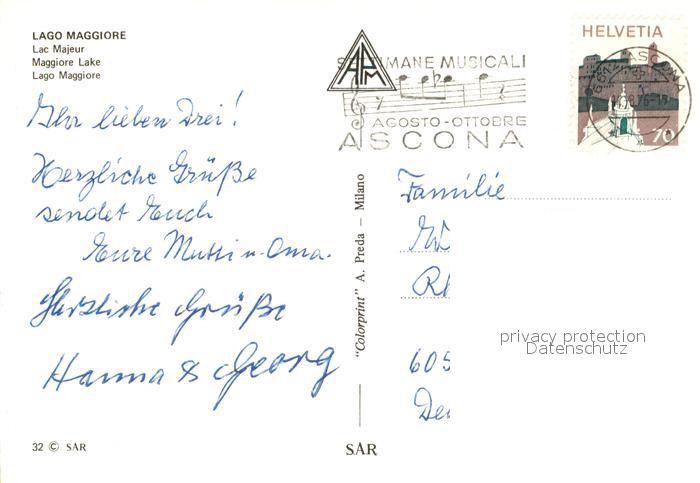 LAGO MAGGIORE
Lac Majeur
Maggiore Lake
Lago Maggiore
Ihr lieben Drei!
Herzliche Grüße
sendet Euch
Eure Mutti u. Oma.
Herzliche Grüße
Hanna & Georg
32 © SAR
"Colorprint" A. Preda — Milano
SAR
APM
SETTIMANE MUSICALI
AGOSTO-OTTOBRE
ASCONA
HELVETIA
70
ASCONA
Familie
605
privacy protection
Datenschutz